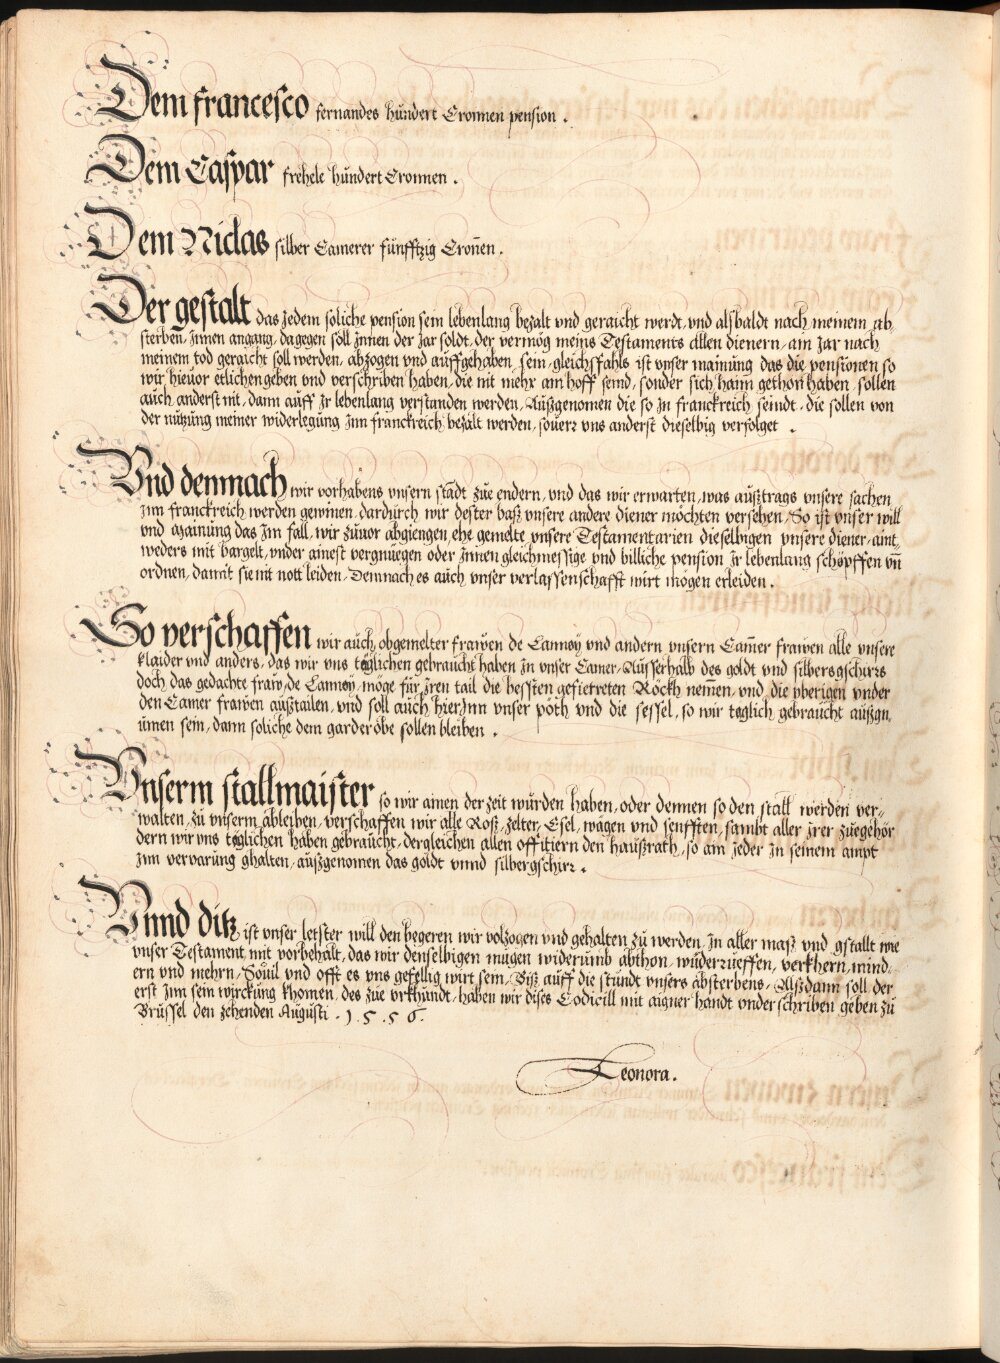 Dem francesco fernandes hundert Cronnen pension .
Dem Caspar frehele hundert Cronnen .
Dem Niclas silber Camerer fünfftzig Cronen .
Der gestalt das jedem soliche pension sein lebenlang bezalt vnd geraicht werdt, vnd alsbaldt nach meinem ab
sterben, jnnen angang, dagegen soll jnnen der Jar soldt, der vermög meins Testaments allen dienern, ain Jar nach
meinem tod geraicht soll werden, abzogen vnd auffgehaben sein, gleichsfahls ist vnser mainung das die pensionen so
wir hieuor etlichen geben vnd verschriben haben, die nit mehr am hoff seind, sonder sich haim gethon haben sollen
auch anderst nit, dann auff Jr lebenlang verstanden werden, Außgenomen die so jn franckreich seindt, die sollen von
der nutzung meiner widerlegung jnn franckreich bezalt werden, souerr vns anderst dieselbig verfolget .
Vnd demnach wir vorhabens vnsern stadt zue endern, vnd das wir erwarten, was außtrags vnsere sachen
jnn franckreich werden gewinen, dardurch wir dester baß vnsere andere diener möchten versehen, So ist vnser will
vnd mainung das jm fall, wir zuuor abgiengen, ehe gemelte vnsere Testamentarien dieselbigen vnsere diener, aint
weders mit bargelt, vnder ainest vergnüegen oder jnnen gleichmessige vnd billiche pension jr lebenlang schöpffen vn
ordnen, damit sie nit nott leiden, Demnach es auch vnser verlassenschafft wirt mögen erleiden .
So verschaffen wir auch, obgemelter frawen de Lannoy vnd andern vnsern Camer frawen alle vnsere
klaider vnd anders, das wir vns täglichen gebraucht haben jn vnser Camer, Ausserhalb des goldt vnd silbersgschirrs
doch das gedachte fraw, de Lannoy, möge für jren tail die bessten gefietreten Röckh nemen, vnd die yberigen vnder
den Camer frawen außtailen, vnd soll auch hierjnn vnser pöth vnd die sessel, so wir täglich gebraucht außgn
umen sein, dann soliche dem garderobe sollen bleiben .
Vnserm stallmaister so wir ainen der zeit würden haben, oder dennen so den stall werden ver-
walten, zu vnserm ableiben, verschaffen wir alle Roß, zelter, Esel, wägen vnd senfften, sambt aller jrer zuegehör
dern wir vns täglichen haben gebraucht, dergleichen allen offitiern den haußrath, so am jeder jn seinem ampt
jnn verwarung ghalten, außgenomen das goldt vnnd silbergschirr .
Vnnd ditz ist vnser letster will den begeren wir volzogen vnd gehalten zu werden, jn aller maß vnd gstallt wie
vnser Testament, mit vorbehalt, das wir denselbigen mügen widerumb abthon, wüderrueffen, verkhern, mind
ern vnd mehrn, Souil vnd offt es vns gefellig wirt sein, Biß auff die stundt vnsers absterbens, Alßdann soll der
erst jnn sein wirckung khomen, des zue vrkhundt, haben wir dises Codicill mit aigner handt vnderschriben geben zu
Brüssel den zehenden Augusti . 1 . 5 . 5 6 .
Leonora .